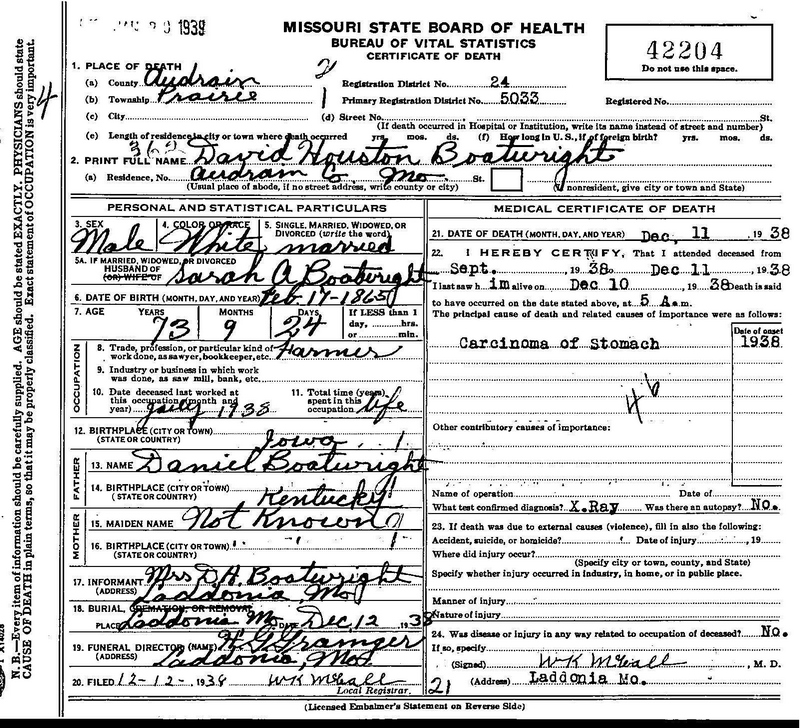 1939
MISSOURI STATE BOARD OF HEALTH
BUREAU OF VITAL STATISTICS
CERTIFICATE OF DEATH
42204
Do not use this space.
1. PLACE OF DEATH
(a) County Audrain 2 Registration District No. 24
(b) Township Prairie 1 Primary Registration District No. 5033 Registered No.
(c) City (d) Street No. St.
(If death occurred in Hospital or Institution, write its name instead of street and number)
(e) Length of residence in city or town where death occurred yrs. mos. ds. (f) How long in U. S., if of foreign birth? yrs. mos. ds.
362
2. PRINT FULL NAME David Houston Boatwright
(a) Residence, No. Audrain Co. Mo. St.
(Usual place of abode, if no street address, write county or city) (If nonresident, give city or town and State)
PERSONAL AND STATISTICAL PARTICULARS
3. SEX 4. COLOR OR RACE 5. SINGLE, MARRIED, WIDOWED, OR DIVORCED (write the word)
Male White married
5A. IF MARRIED, WIDOWED, OR DIVORCED
HUSBAND OF
(OR) WIFE OF Sarah A Boatwright
6. DATE OF BIRTH (MONTH, DAY, AND YEAR) Feb. 17-1865
7. AGE YEARS MONTHS DAYS If LESS than 1 day, ___hrs. or ___min.
73 9 24
OCCUPATION
8. Trade, profession, or particular kind of work done, as sawyer, bookkeeper, etc. Farmer
9. Industry or business in which work was done, as saw mill, bank, etc.
10. Date deceased last worked at this occupation (month and year) July 1938
11. Total time (years) spent in this occupation life
12. BIRTHPLACE (CITY OR TOWN)
(STATE OR COUNTRY) Iowa 1
FATHER
13. NAME Daniel Boatwright
14. BIRTHPLACE (CITY OR TOWN)
(STATE OR COUNTRY) Kentucky 1
MOTHER
15. MAIDEN NAME Not Known
16. BIRTHPLACE (CITY OR TOWN) " " 1
(STATE OR COUNTRY)
17. INFORMANT Mrs D. H. Boatwright
(ADDRESS) Laddonia Mo
18. BURIAL, CREMATION, OR REMOVAL
PLACE Laddonia Mo. DATE Dec 12 1938
19. FUNERAL DIRECTOR (NAME) H. G. Grainger
(ADDRESS) Laddonia, Mo.
20. FILED 12-12-1938 WK McCall
Local Registrar.
MEDICAL CERTIFICATE OF DEATH
21. DATE OF DEATH (MONTH, DAY, AND YEAR) Dec, 11 , 19 38
22. I HEREBY CERTIFY, That I attended deceased from
Sept. , 19 38, to Dec 11 , 19 38
I last saw him alive on Dec 10 , 19 38 Death is said
to have occurred on the date stated above, at 5 A.m.
The principal cause of death and related causes of importance were as follows:
Date of onset
Carcinoma of Stomach 1938
46
Other contributory causes of importance:
Name of operation Date of
What test confirmed diagnosis? X.Ray Was there an autopsy? No.
23. If death was due to external causes (violence), fill in also the following:
Accident, suicide, or homicide? Date of injury , 19
Where did injury occur?
(Specify city or town, county, and State)
Specify whether injury occurred in industry, in home, or in public place.
Manner of injury
Nature of injury
24. Was disease or injury in any way related to occupation of deceased? No.
If so, specify
(Signed) WK McCall , M. D.
21 (Address) Laddonia Mo.
(Licensed Embalmer's Statement on Reverse Side)
N. B.—Every item of information should be carefully supplied. AGE should be stated EXACTLY. PHYSICIANS should state
CAUSE OF DEATH in plain terms, so that it may be properly classified. Exact statement of OCCUPATION is very important.
4